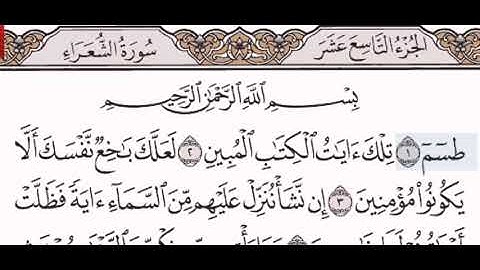 الجزء التاسع عشر
سورة الشعراء
بِسْمِ اللَّهِ الرَّحْمَٰنِ الرَّحِيمِ
طسٓمٓ ١ تِلْكَ ءَايَٰتُ الْكِتَٰبِ الْمُبِينِ ٢ لَعَلَّكَ بَٰخِعٌ نَّفْسَكَ أَلَّا
يَكُونُوا مُؤْمِنِينَ ٣ إِن نَّشَأْ نُنَزِّلْ عَلَيْهِم مِّنَ السَّمَآءِ ءَايَةً فَظَلَّتْ